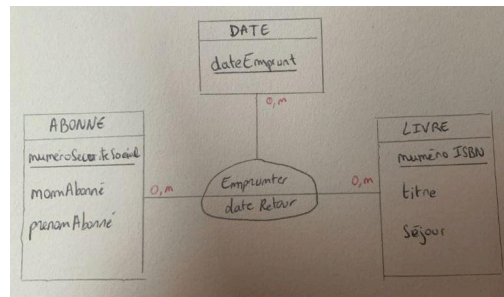 DATE
dateEmprunt
0,n
ABONNÉ
numéroSecuriteSocial
nomAbonné
prenomAbonné
0,n
Emprunter
dateRetour
0,n
LIVRE
numéro ISBN
titre
Séjour